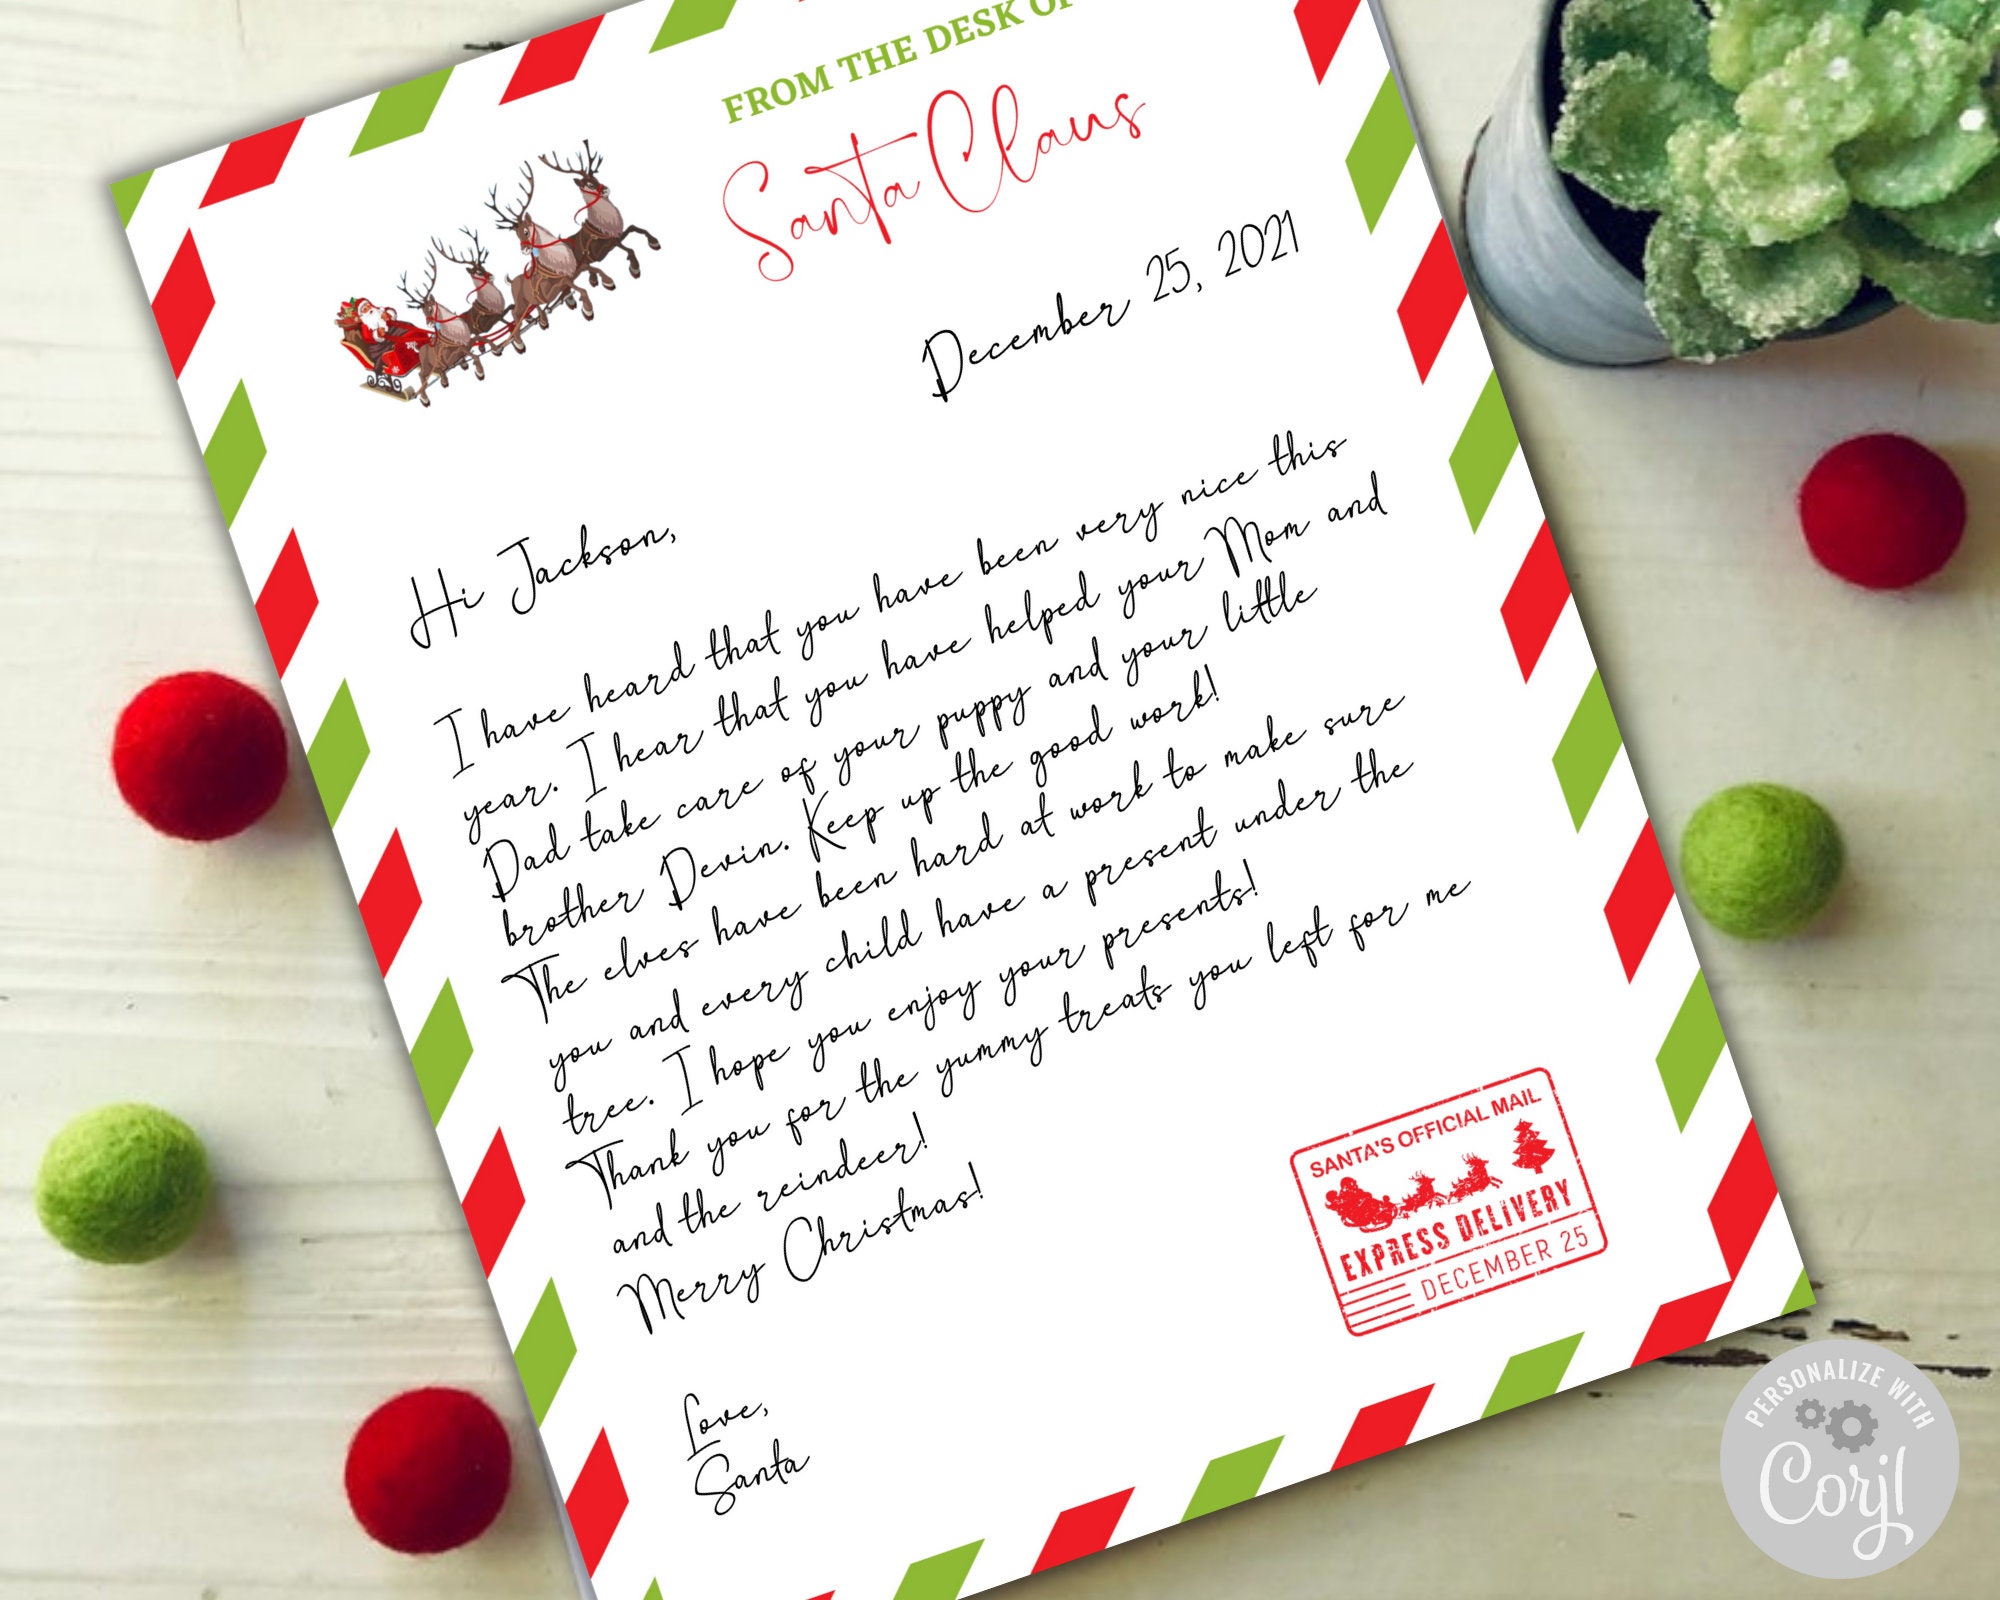 FROM THE DESK OF
Santa Claus
December 25, 2021
Hi Jackson,
I have heard that you have been very nice this
year. I hear that you have helped your Mom and
Dad take care of your puppy and your little
brother Devin. Keep up the good work!
The elves have been hard at work to make sure
you and every child have a present under the
tree. I hope you enjoy your presents!
Thank you for the yummy treats you left for me
and the reindeer!
Merry Christmas!
Love,
Santa
SANTA'S OFFICIAL MAIL
EXPRESS DELIVERY
DECEMBER 25
PERSONALIZE WITH
Corjl